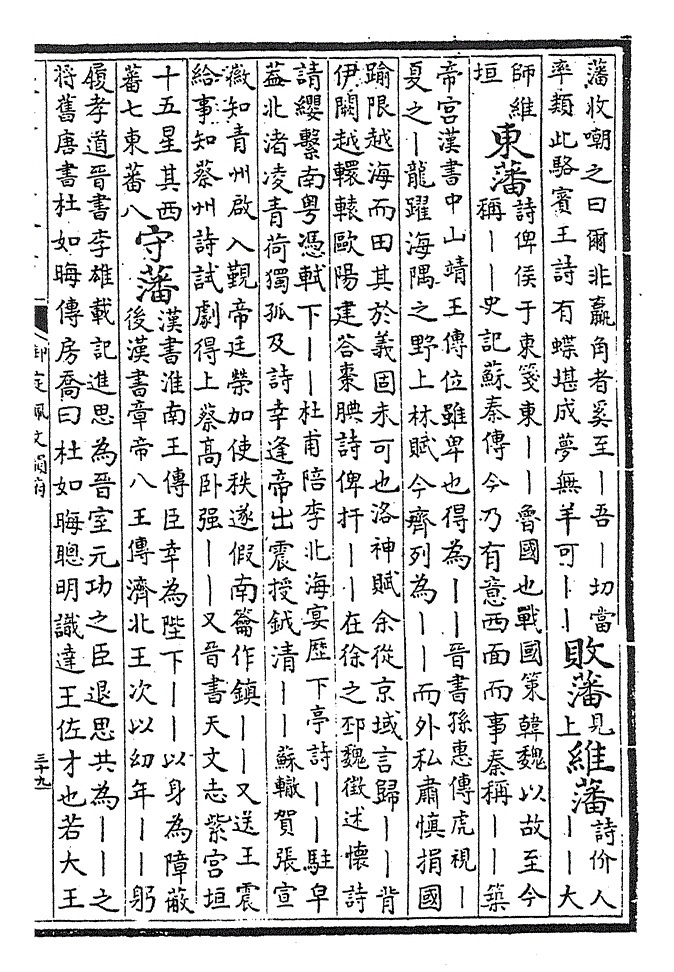 藩收嘲之曰爾非羸角者奚至丨吾丨切當
率類此駱賓王詩有蝶堪成夢無羊可丨丨
敗藩
見上
維藩
詩价人
丨丨大
師維
垣
東藩
詩俾侯于東箋東丨丨魯國也戰國策韓魏以故至今
稱丨丨史記蘇秦傳今乃有意西面而事秦稱丨丨築
帝宮漢書中山靖王傳位雖卑也得為丨丨晉書孫惠傳虎視丨
夏之丨龍躍海隅之野上林賦今齊列為丨丨而外私肅慎捐國
踰限越海而田其於義固未可也洛神賦余從京域言歸丨丨背
伊闕越轘轅歐陽建答棗腆詩俾扞丨丨在徐之邳魏徵述懷詩
請纓繫南粵憑軾下丨丨杜甫陪李北海宴歷下亭詩丨丨駐皁
葢北渚凌青荷獨孤及詩幸逢帝出震授鉞清丨丨蘇轍賀張宣
徽知青州啟入覲帝廷榮加使秩遂假南籥作鎮丨丨又送王震
給事知蔡州詩試劇得上蔡高卧强丨丨又晉書天文志紫宮垣
十五星其西
蕃七東蕃八
守藩
漢書淮南王傳臣幸為陛下丨丨以身為障蔽
後漢書章帝八王傳濟北王次以幼年丨丨躬
履孝道晉書李雄載記進思為晉室元功之臣退思共為丨丨之
將舊唐書杜如晦傳房喬曰杜如晦聰明識達王佐才也若大王
御定佩文韻府
三十九